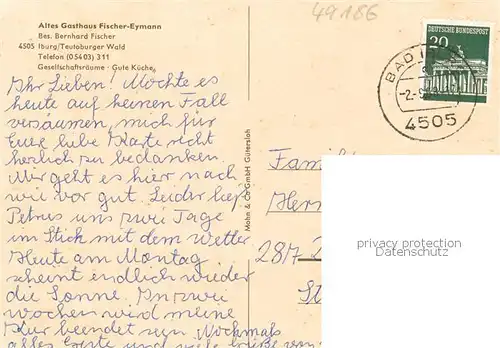 49186
Altes Gasthaus Fischer-Eymann
Bes. Bernhard Fischer
4505 Iburg/Teutoburger Wald
Telefon (05403) 311
Gesellschaftsräume · Gute Küche
Ihr Lieben! Möchte es
heute auf keinen Fall
versäumen, mich für
Eure liebe Karte recht
herzlich zu bedanken.
Mir geht es hier nach
wie vor gut. Leider ließ
Petrus uns zwei Tage
im Stich mit dem Wetter
Heute am Montag
scheint endlich wieder
die Sonne. In zwei
Wochen wird meine
Kur beendet sein. Nochmals
alles Gute und viele Grüße von
Mohn & Co GmbH Gütersloh
20
DEUTSCHE BUNDESPOST
BAD I
-2.
4505
Famil
Herr
287
privacy protection
Datenschutz